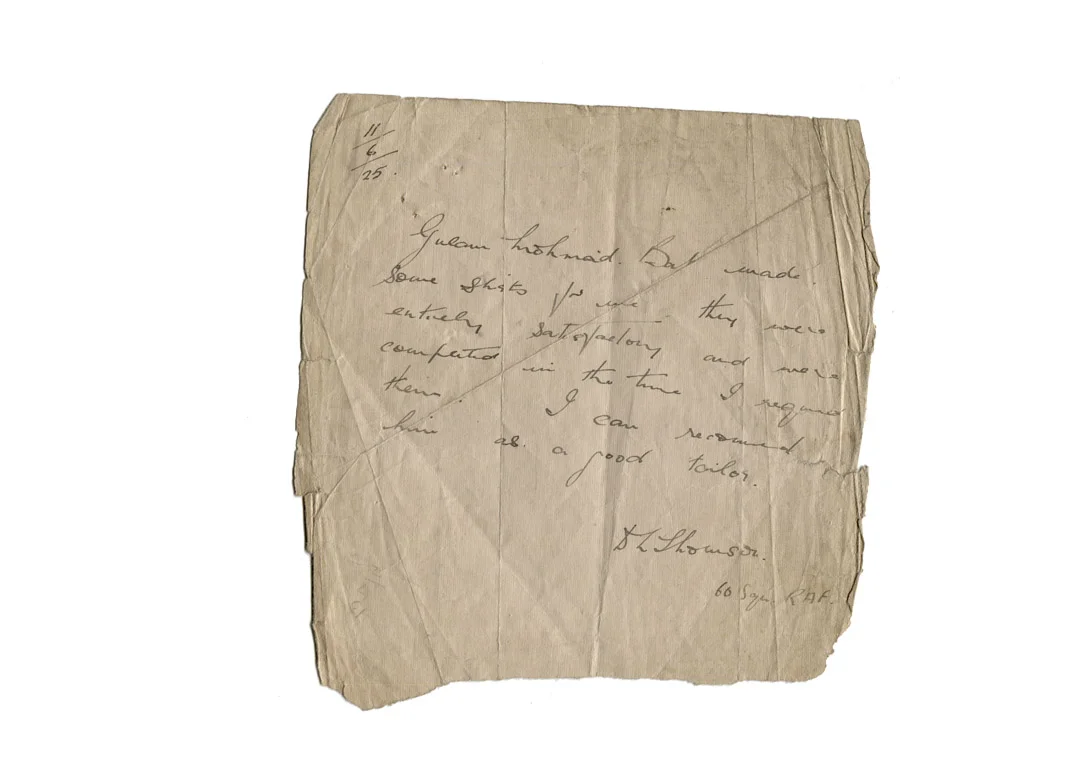 11
6
25.
Gulam Mohmad. Bat made
some shirts for me they were
entirely satisfactory and were
completed in the time I required
them. I can recomend
him as a good tailor.
D L Thomson.
60 Sqn. RAF.